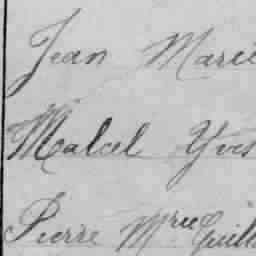 Jean Marie
Malcel Yves
Pierre Mrie Guill